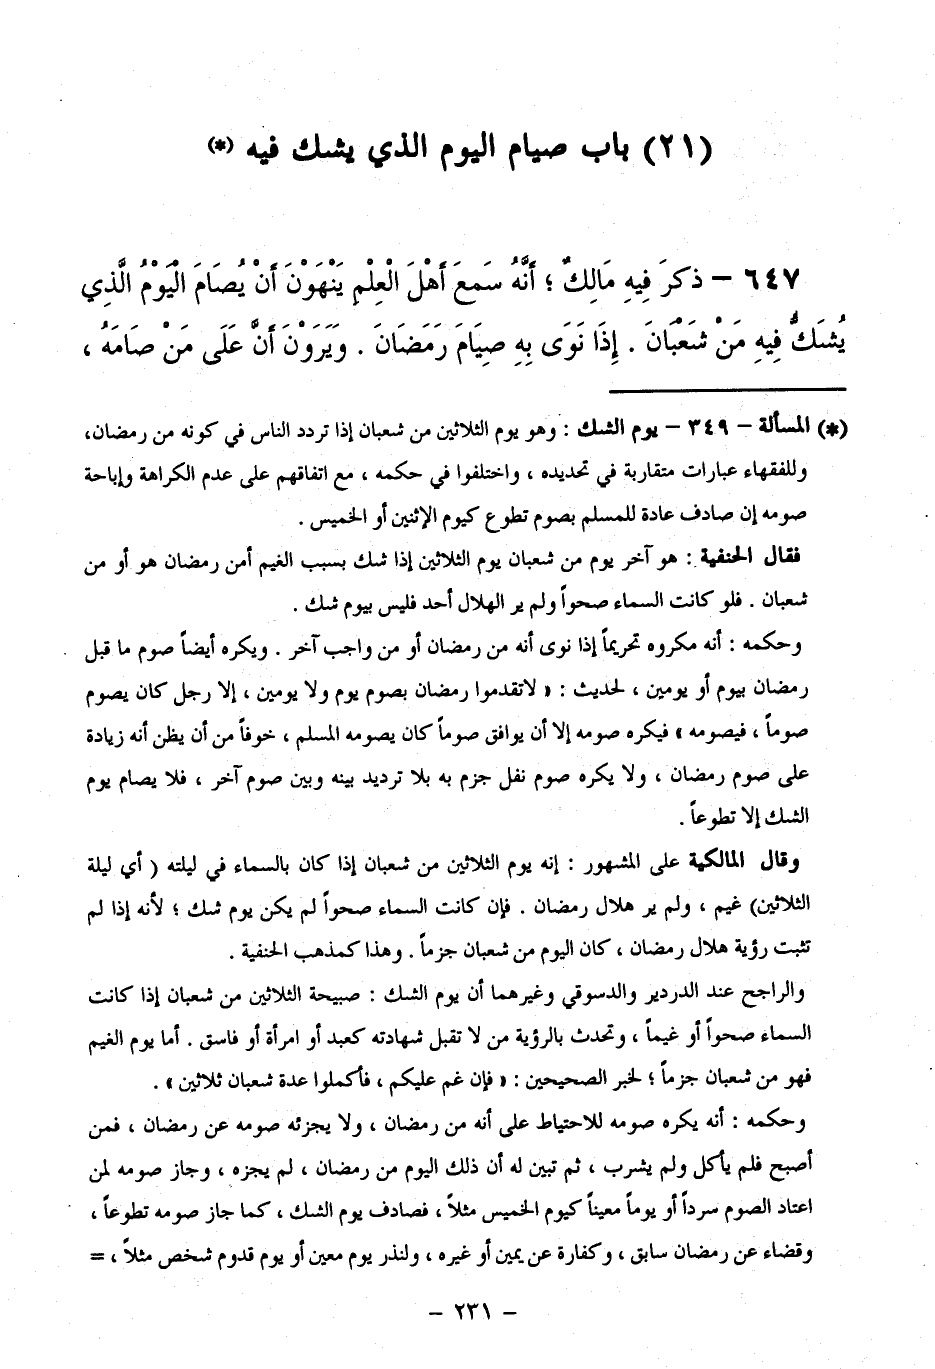 (٢١) باب صيام اليوم الذي يشك فيه (*)
٦٤٧ - ذكَرَ فِيهِ مَالِكٌ ؛ أَنَّهُ سَمِعَ أَهْلَ الْعِلْمِ يَنْهَوْنَ أَنْ يُصَامَ الْيَوْمُ الَّذِي
يُشَكُّ فِيهِ مَنْ شَعْبَانَ . إِذَا نَوَى بِهِ صِيَامَ رَمَضَانَ . وَيَرَوْنَ أَنَّ عَلَى مَنْ صَامَهُ ،
(*) المسألة - ٣٤٩ - يوم الشك : وهو يوم الثلاثين من شعبان إذا تردد الناس في كونه من رمضان،
وللفقهاء عبارات متقاربة في تحديده ، واختلفوا في حكمه ، مع اتفاقهم على عدم الكراهة وإباحة
صومه إن صادف عادة للمسلم بصوم تطوع كيوم الإثنين أو الخميس .
فقال الحنفية : هو آخر يوم من شعبان يوم الثلاثين إذا شك بسبب الغيم أمن رمضان هو أو من
شعبان . فلو كانت السماء صحواً ولم ير الهلال أحد فليس بيوم شك .
وحكمه : أنه مكروه تحريماً إذا نوى أنه من رمضان أو من واجب آخر . ويكره أيضاً صوم ما قبل
رمضان بيوم أو يومين ، لحديث : « لاتقدموا رمضان بصوم يوم ولا يومين ، إلا رجل كان يصوم
صوماً ، فيصومه » فيكره صومه إلا أن يوافق صوماً كان يصومه المسلم ، خوفاً من أن يظن أنه زيادة
على صوم رمضان ، ولا يكره صوم نفل جزم به بلا ترديد بينه وبين صوم آخر ، فلا يصام يوم
الشك إلا تطوعاً .
وقال المالكية على المشهور : إنه يوم الثلاثين من شعبان إذا كان بالسماء في ليلته ( أي ليلة
الثلاثين) غيم ، ولم ير هلال رمضان . فإن كانت السماء صحواً لم يكن يوم شك ؛ لأنه إذا لم
تثبت رؤية هلال رمضان ، كان اليوم من شعبان جزماً . وهذا كمذهب الحنفية .
والراجح عند الدردير والدسوقي وغيرهما أن يوم الشك : صبيحة الثلاثين من شعبان إذا كانت
السماء صحواً أو غيماً ، وتحدث بالرؤية من لا تقبل شهادته كعبد أو امرأة أو فاسق . أما يوم الغيم
فهو من شعبان جزماً ؛ لخبر الصحيحين : « فإن غم عليكم ، فأكملوا عدة شعبان ثلاثين » .
وحكمه : أنه يكره صومه للاحتياط على أنه من رمضان ، ولا يجزئه صومه عن رمضان ، فمن
أصبح فلم يأكل ولم يشرب ، ثم تبين له أن ذلك اليوم من رمضان ، لم يجزه ، وجاز صومه لمن
اعتاد الصوم سرداً أو يوماً معيناً كيوم الخميس مثلاً ، فصادف يوم الشك ، كما جاز صومه تطوعاً ،
وقضاء عن رمضان سابق ، وكفارة عن يمين أو غيره ، ولنذر يوم معين أو يوم قدوم شخص مثلاً ، =
- ٢٣١ -